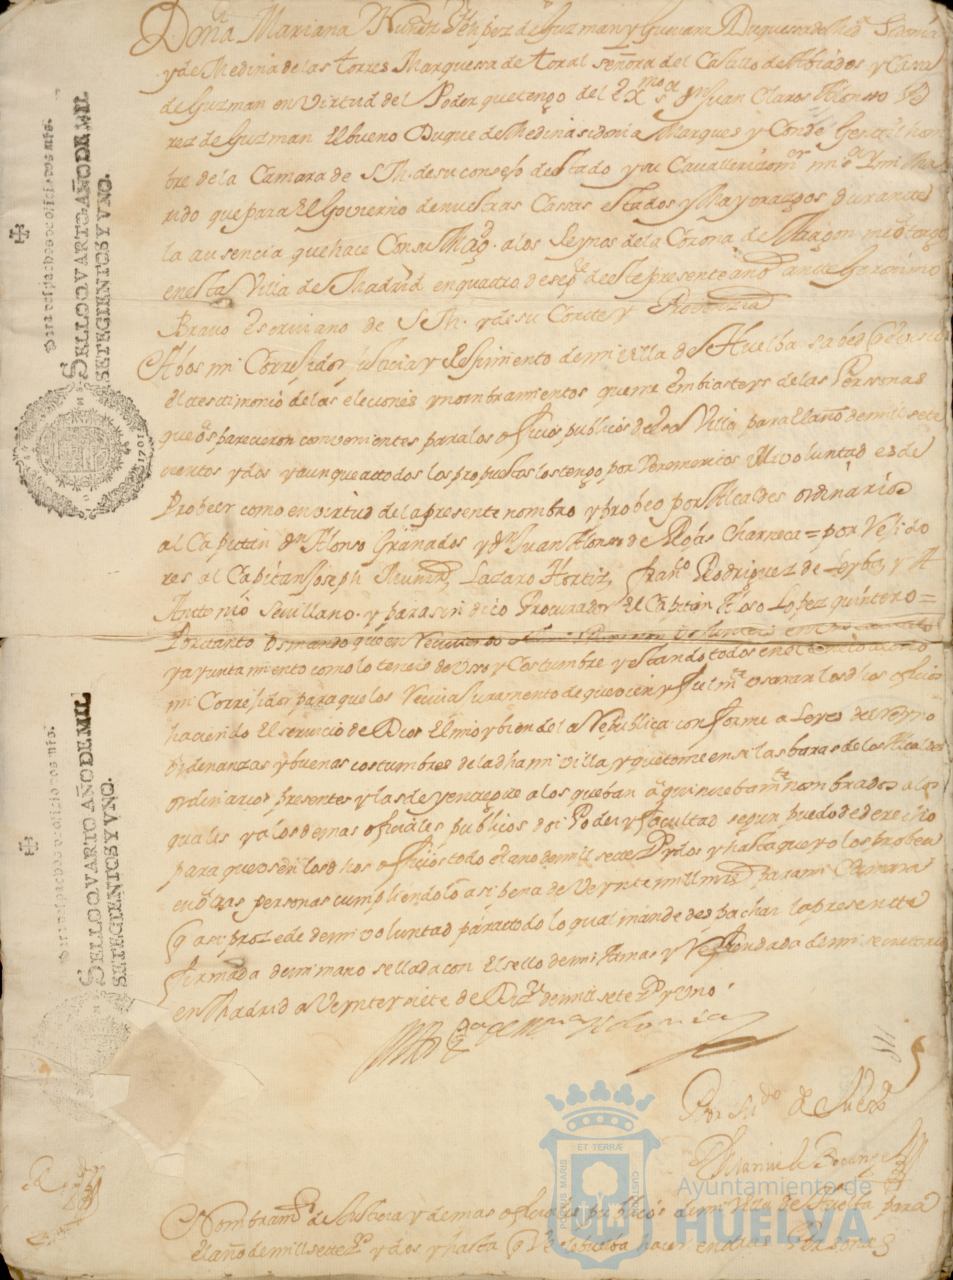 Doña Mariana Nuñez Phelipez de Guzman y Guevara Duquesa de Med.ª Sidonia
y de Medina de las torres Marquesa de toral señora del Castillo de Abiados y Cassa
de Guzman en virtud del Poder que tengo del Ex.mo S.or Dn Juan Claros Alonso Pe
rez de Guzman El bueno Duque de Medina sidonia Marques y Conde Gentil hom
bre de la Camara de S.M. de su consejo de estado y su Cavallerizo m.or mi s.or Y mi Ma
rido que para El Govierno de nuestras Cassas estados y Mayorazgos durante
la ausencia que hace Con su Mag.d a los Reynos de la Corona de Aragon me otorgó
en esta Villa de Madrid en quatro de sep.re de este presente año ante Geronimo
Bravo Escriviano de S.M. y de su Corte y Provinzia
A bos mi Correxidor Justicia y Reximiento de mi villa de Huelba sabed
El testimonio de las eleciones y nombramientos que me embiasteys de las Personas
que os parecieron convenientes para los oficios publicos de esa Villa para El año de mil sete
cientos y dos y aunque a todos los propuestos los tengo por Venemeritos Mi voluntad es de
Probeer como en virtud de la presente nombro y probeo por Alcaldes ordinarios
al Capitan Dn Alonso Granados y Dn Juan Alonso de Rojas Charneca = por Rexido
res al Capitan Joseph Lazaro Hortiz, Fran.co Rodriguez de Leyba, y
Antonio Sevillano. y para sindico Procurador El Capitan Al.o Lopez quintero =
Por tanto Os mando que en
y ayuntamiento como lo teneis de Uso y Costumbre y estando todos en el
mi Correxidor para que los Reciva Juramento de que vien y fielm.te usaran los d.hos oficios
haciendo El servicio de Dios El mio y bien de la Republica conforme a Leyes del Reyno
Ordenanzas y buenas costumbres de la dha mi villa y que tome en si las baras de los Alcaldes
ordinarios presentes y las de y entregue a los que ban aqui nuebam.te nombrados a los
quales y a los demas oficiales publicos doi Poder y facultad segun puedo de derecho
para que usen los dhos oficios todo el año de mil sette z.os y dos y hasta que yo los probea
en otras personas cumpliendolo asi pena de Veynte mill mrs para mi Camara
q asi prozede de mi voluntad para todo lo qual mande despachar la presente
firmada de mi mano sellada con El sello de mis Armas y Refrendada de mi secretario
en Madrid a Veynte y siete de Diz.e de mil sete z.os y Uno.
Por su m.do de su Ex.a
Manuel Bocangel
Nombram.to de Justicia y demas oficiales publicos de mi Villa de Huelba para
El año de mill sette z.os y dos y hasta q V.e se buelba hacer en otras Personas
Para despachos de oficio dos mrs.
SELLO QVARTO AÑO DE MIL
SETECIENTOS Y VNO.
1701
Para despachos de oficio dos mrs.
SELLO QVARTO AÑO DE MIL
SETECIENTOS Y VNO.
ET TERRÆ
PORTUS MARIS
CUSTODIA
Ayuntamiento de
HUELVA